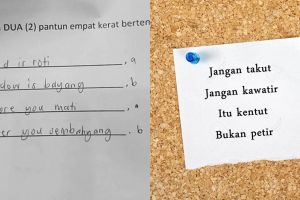 DUA (2) pantun empat kerat berten
d is roti, a
dow is bayang, b
ore you mati, a
er you sembahyang. b
Jangan takut
Jangan kawatir
Itu kentut
Bukan petir